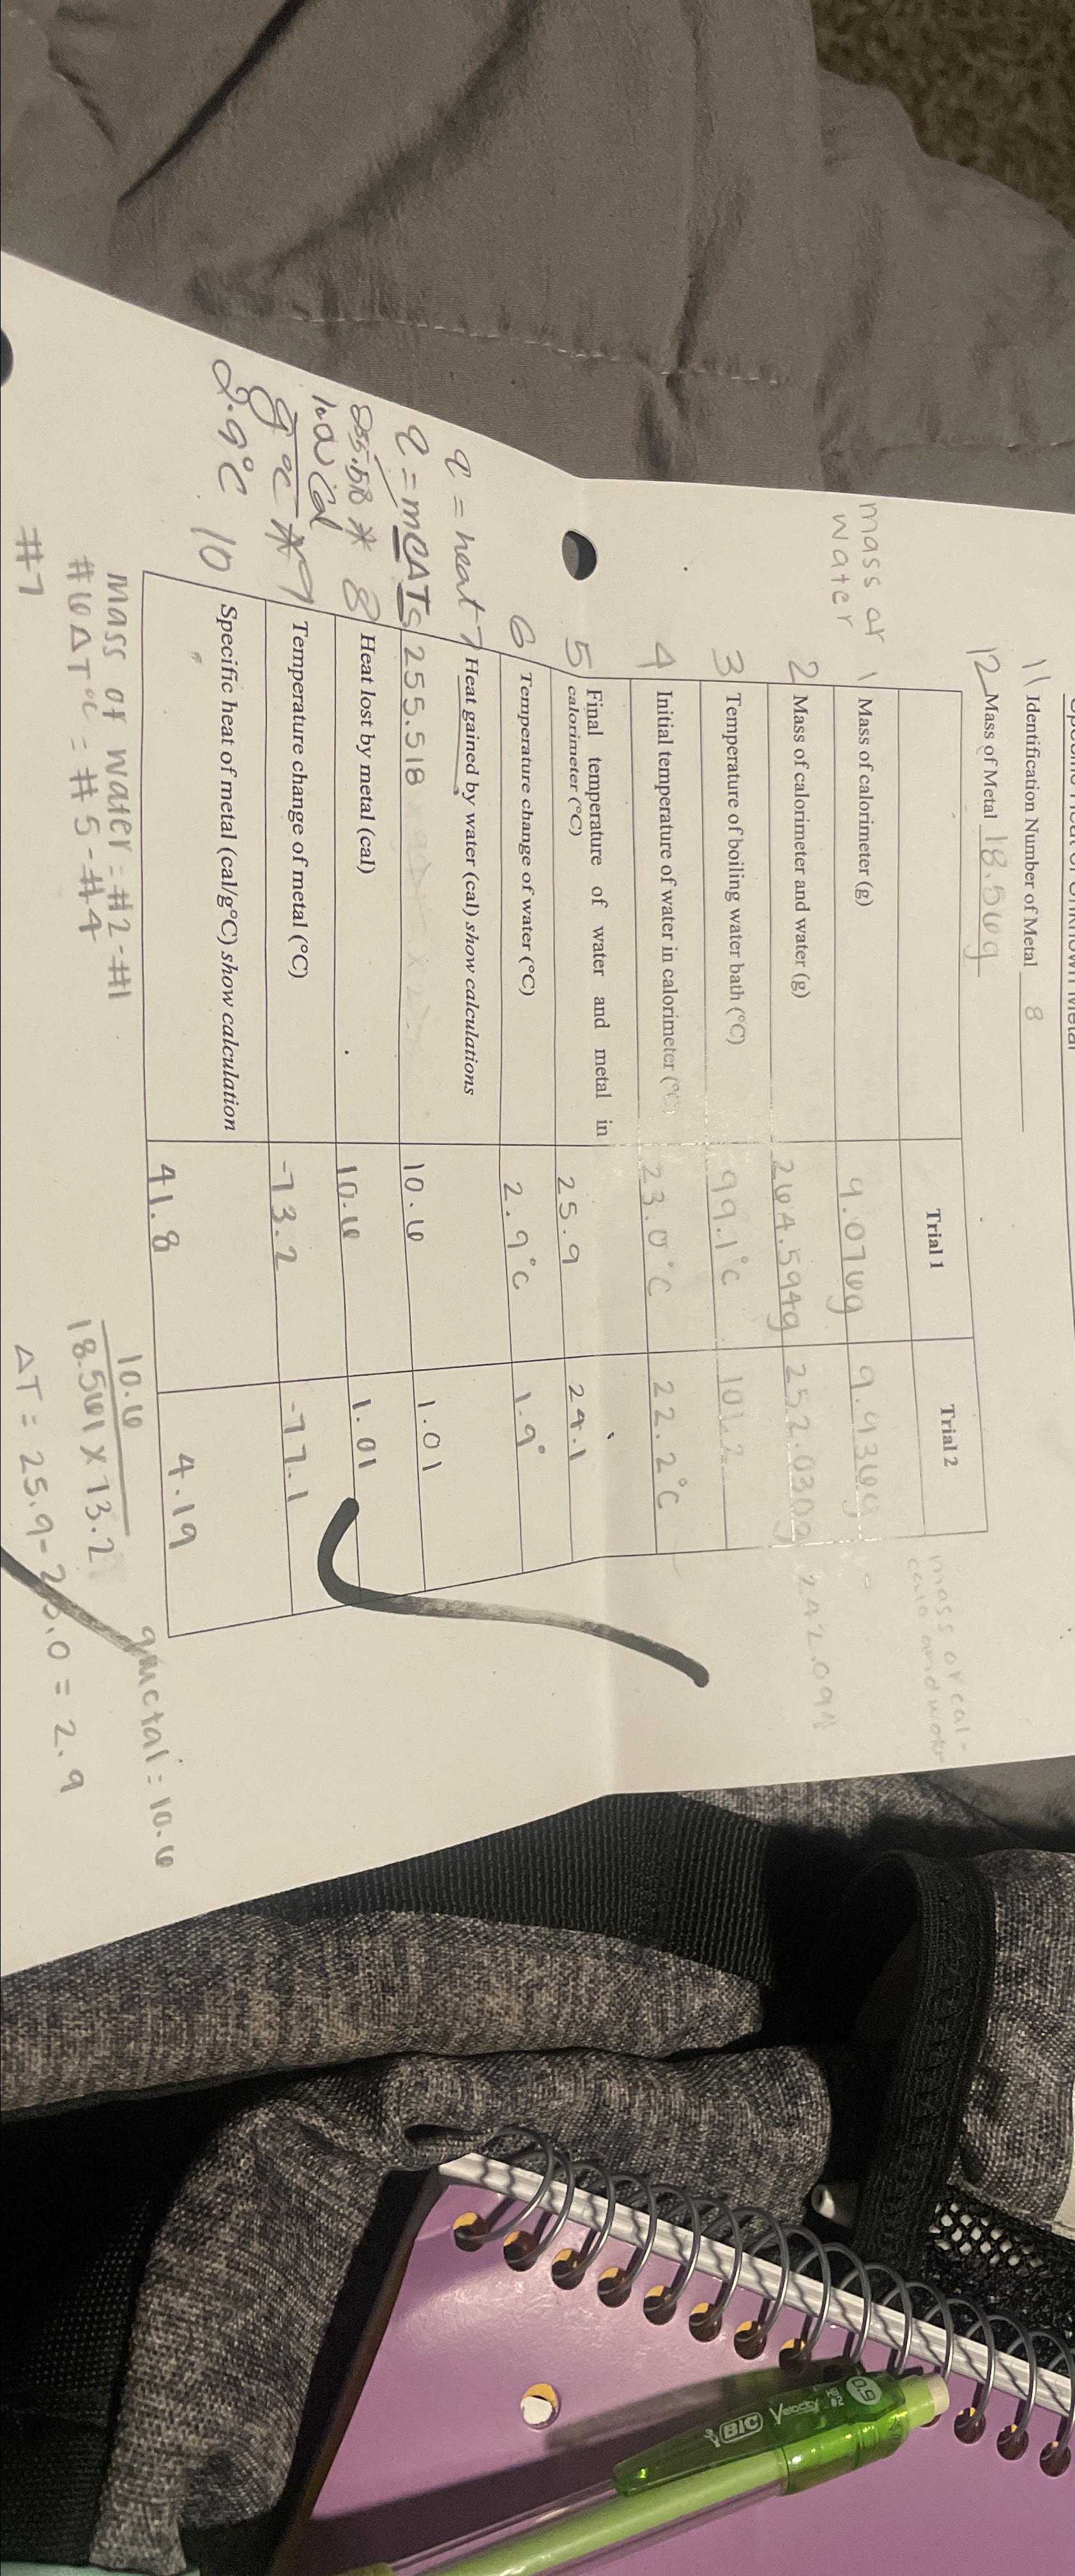 11 Identification Number of Metal 8
12 Mass of Metal 18.561g
Trial 1 Trial 2
mass of
water
1 Mass of calorimeter (g) 9.076g 9.936g
2 Mass of calorimeter and water (g) 264.594g 252.030g 242.094
3 Temperature of boiling water bath (°C) 99.1°C 101.2
4 Initial temperature of water in calorimeter (°C) 23.0°C 22.2°C
5 Final temperature of water and metal in
calorimeter (°C) 25.9 24.1
6 Temperature change of water (°C) 2.9°C 1.9°
q = heat 7 Heat gained by water (cal) show calculations
q = mCΔT 255.518 10.6 1.01
8 Heat lost by metal (cal) 10.6 1.01
9 Temperature change of metal (°C) -73.2 -77.1
g°C *
2.9°C
10 Specific heat of metal (cal/g°C) show calculation 41.8 4.19
mass of water = #2 - #1
#6 ΔT °C = #5 - #4
#7
10.6
18.561 x 73.2
qmetal = 10.6
ΔT = 25.9 - 23.0 = 2.9
BIC Velocity
0.9